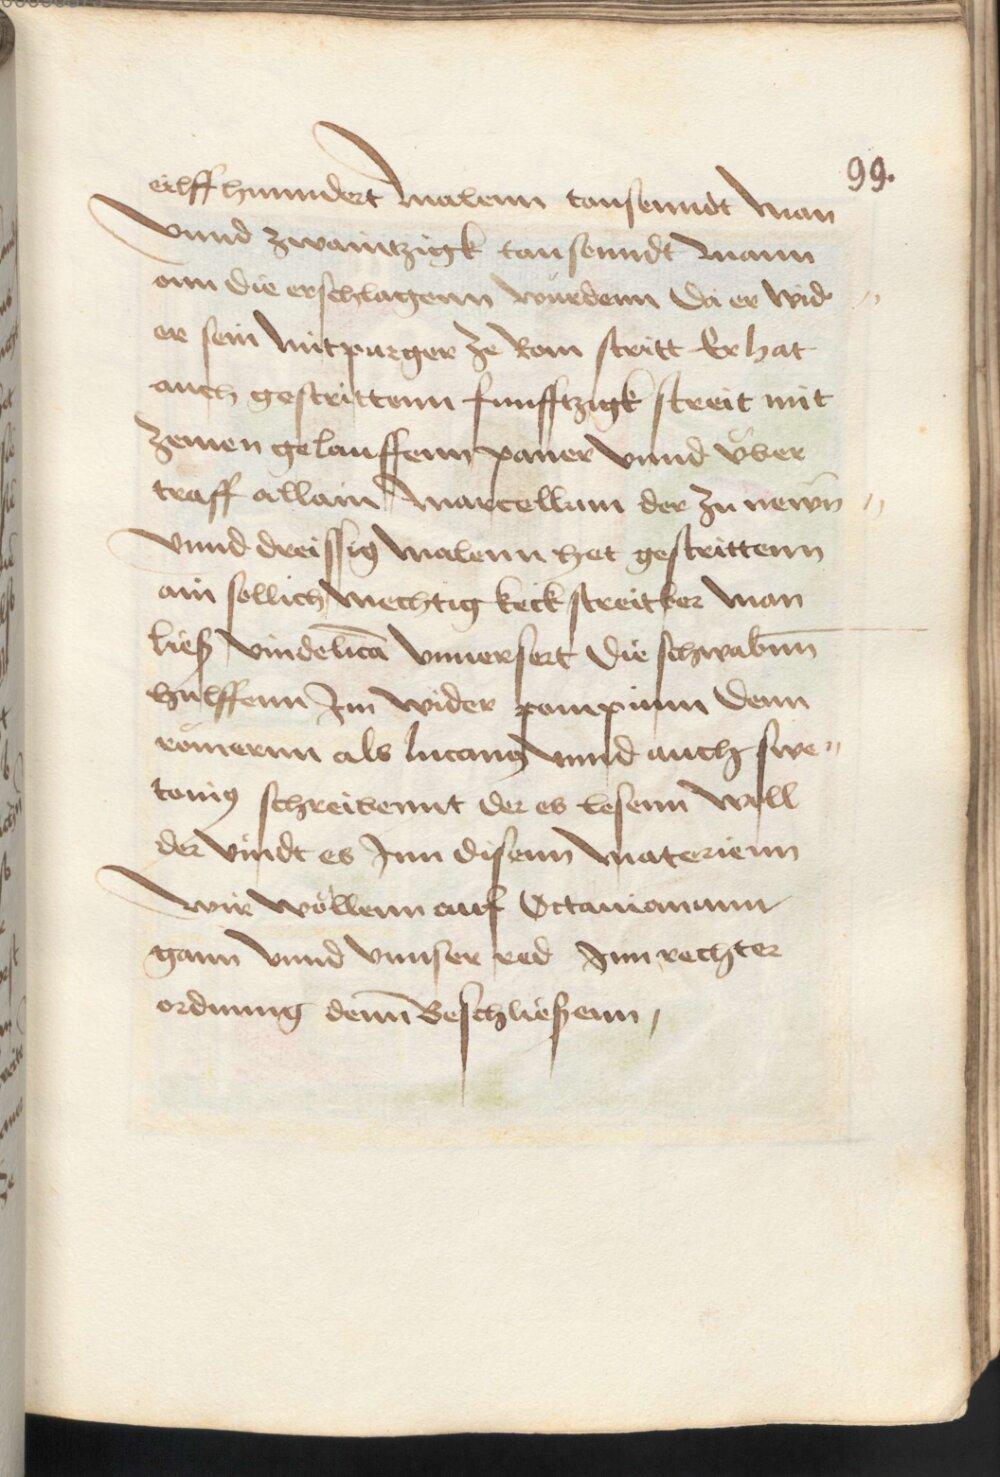 99.
eilff hunndert malenn tausenndt man
vnnd zwaintzigk tausenndt mann
onn die erschlagenn wurdenn da er wid
er sein mitpurger ze Rom stritt Er hat
auch gestrittenn funfftzigk streit mit
zemen gelauffenn paner vnnd vber
traff allain Marcellum der zu newn
vnnd dreissig malenn het gestrittenn
ain sollich mechtig keck streitber man
ließ vindelica vnuersert die schwabnn
hulffenn Im wider pompium denn
römernn als lucanus vnnd auch swe
tonius schreibennt der es lesenn well
der vindt es Inn disenn materienn
wir wöllenn auf Octauianum
gann vnnd vnnser red Inn rechter
ordnung denn beschließenn /